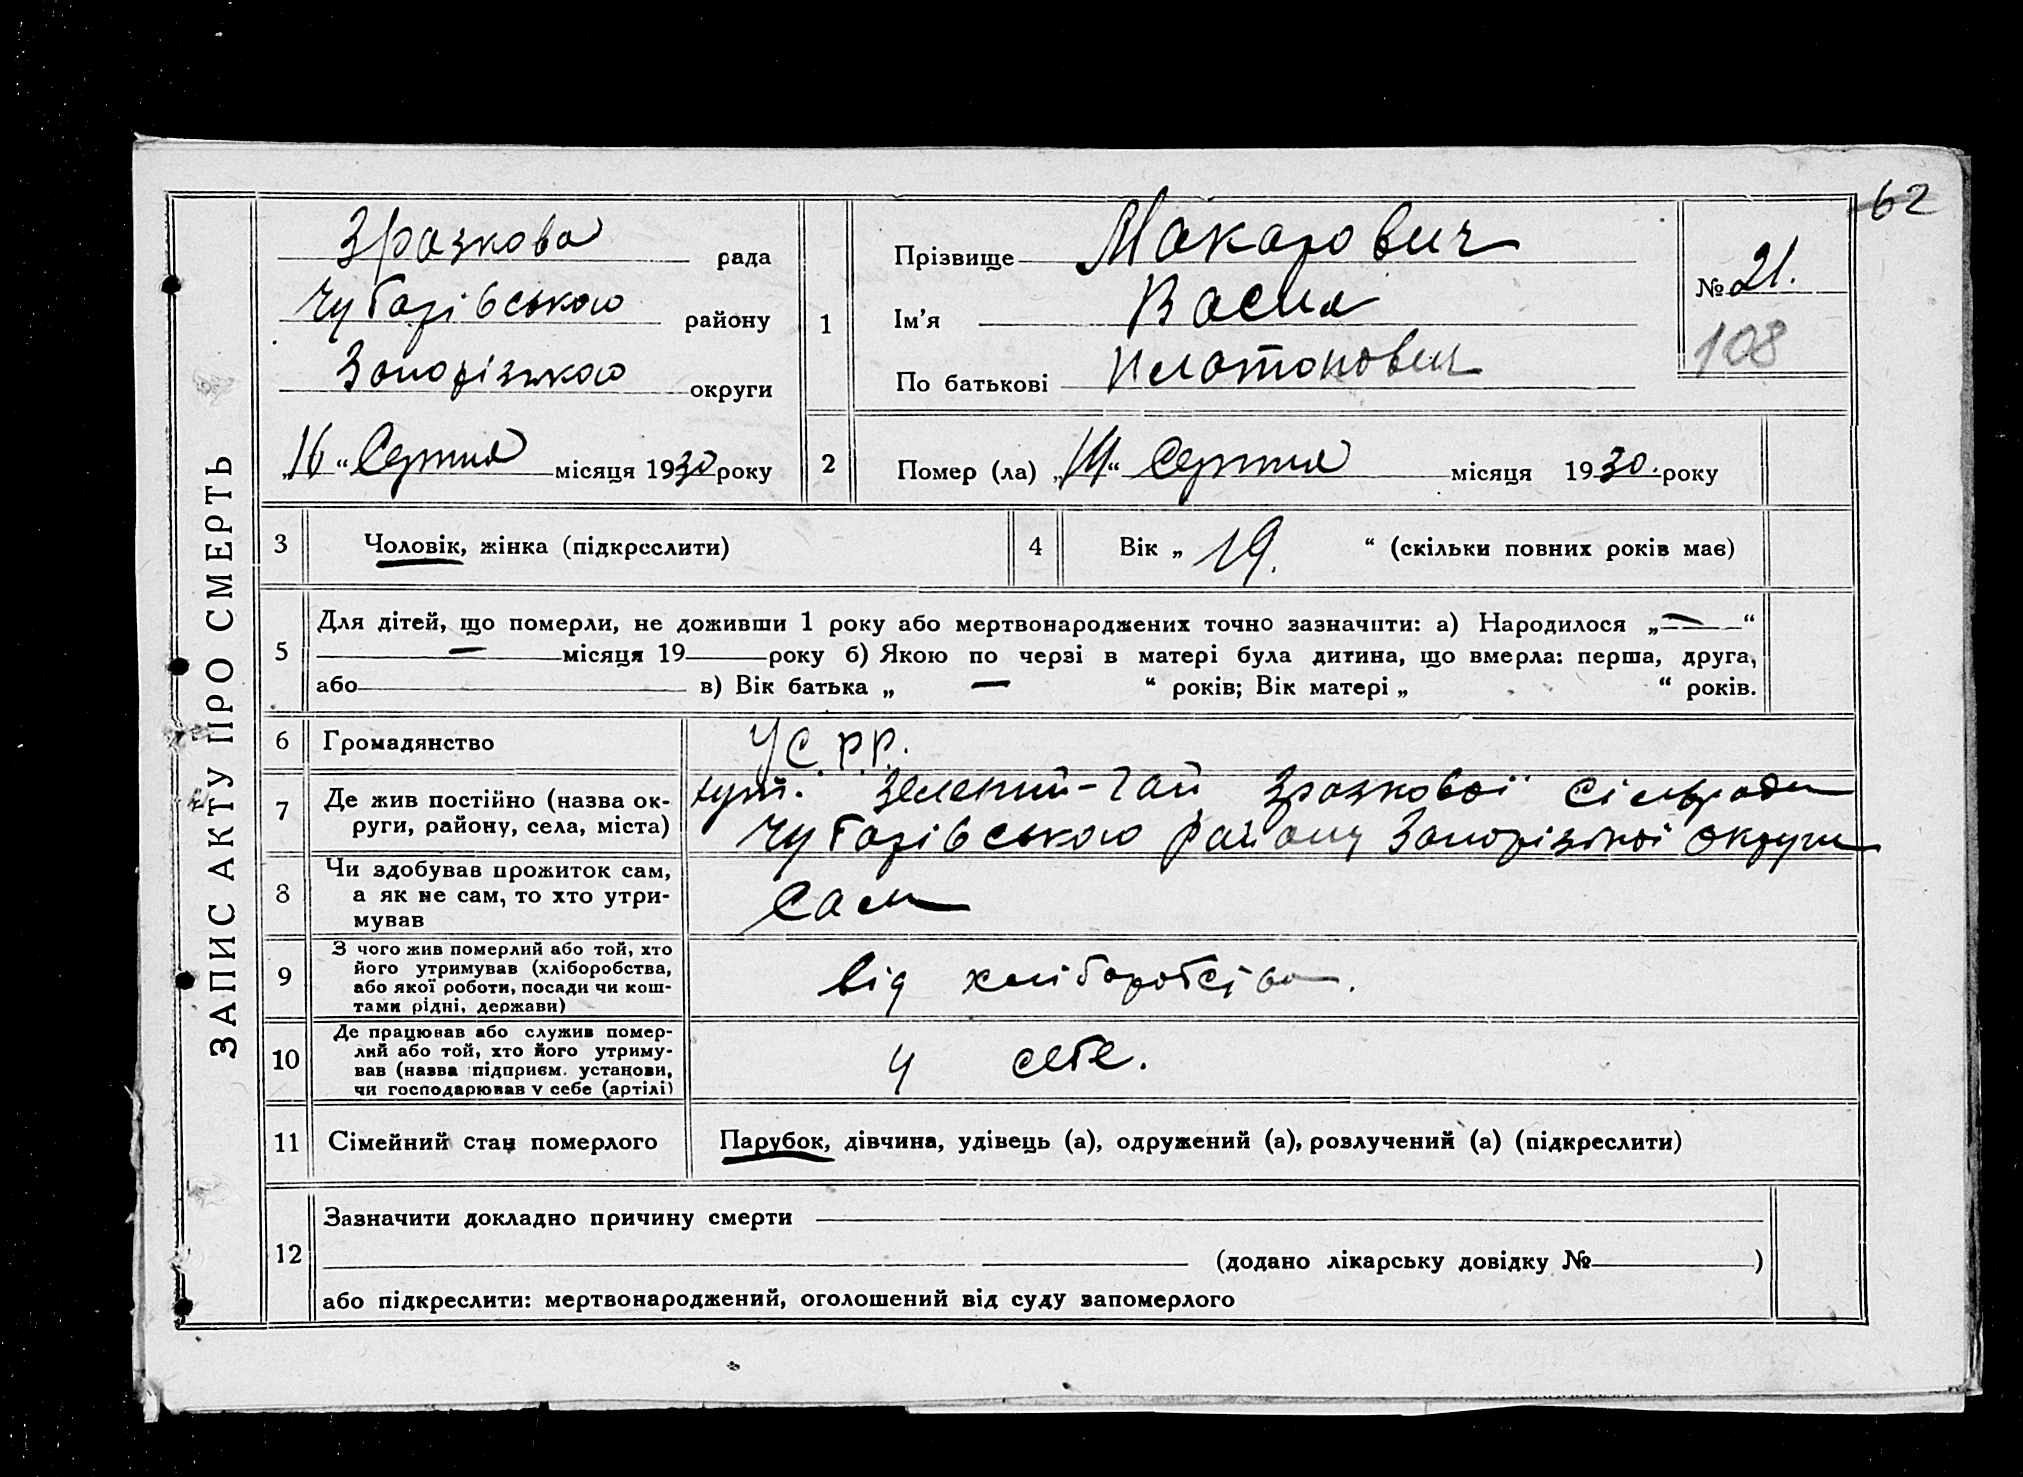 62
ЗАПИС АКТУ ПРО СМЕРТЬ
Зразкова рада
Чубарівського району
Запорізького округи
„16“ Серпня місяця 1930 року
1
Прізвище Макарович
Ім’я Васил
По батькові Платонович
№ 21.
108
2
Помер (ла) „14“ Серпня місяця 1930. року
3 Чоловік, жінка (підкреслити)
4 Вік „ 19. “ (скільки повних років має)
5 Для дітей, що померли, не доживши 1 року або мертвонароджених точно зазначити: а) Народилося „—“
— місяця 19 року б) Якою по черзі в матері була дитина, що вмерла: перша, друга,
або в) Вік батька „ — “ років; Вік матері „ “ років.
6 Громадянство УСРР.
7 Де жив постійно (назва ок-
руги, району, села, міста)
хут. Зелений-Гай Зразкової Сільради
Чубарівського району Запорізької округи
8 Чи здобував прожиток сам,
а як не сам, то хто утри-
мував
Сам
9 З чого жив померлий або той, хто
його утримував (хліборобства,
або якої роботи, посади чи кош-
тами рідні, держави)
від хліборобства.
10 Де працював або служив помер-
лий або той, хто його утриму-
вав (назва підприєм. установи,
чи господарював у себе (артілі)
у себе.
11 Сімейний стан померлого Парубок, дівчина, удівець (а), одружений (а), розлучений (а) (підкреслити)
12 Зазначити докладно причину смерти
(додано лікарську довідку № )
або підкреслити: мертвонароджений, оголошений від суду запомерлого